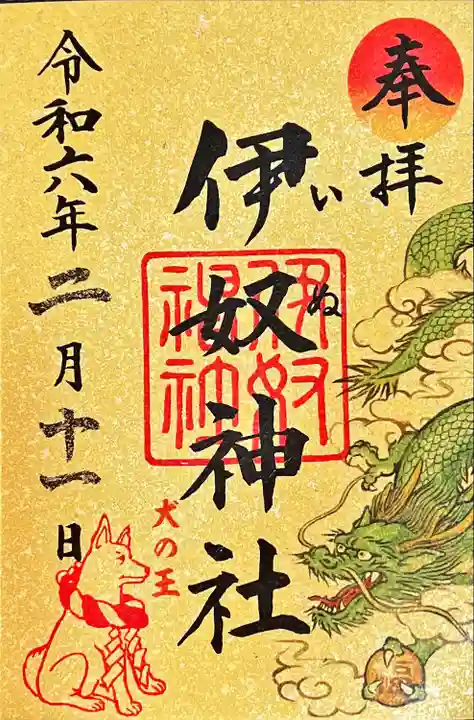 奉拝
伊奴神社
いぬ
伊奴神社
犬の王
令和六年二月十一日